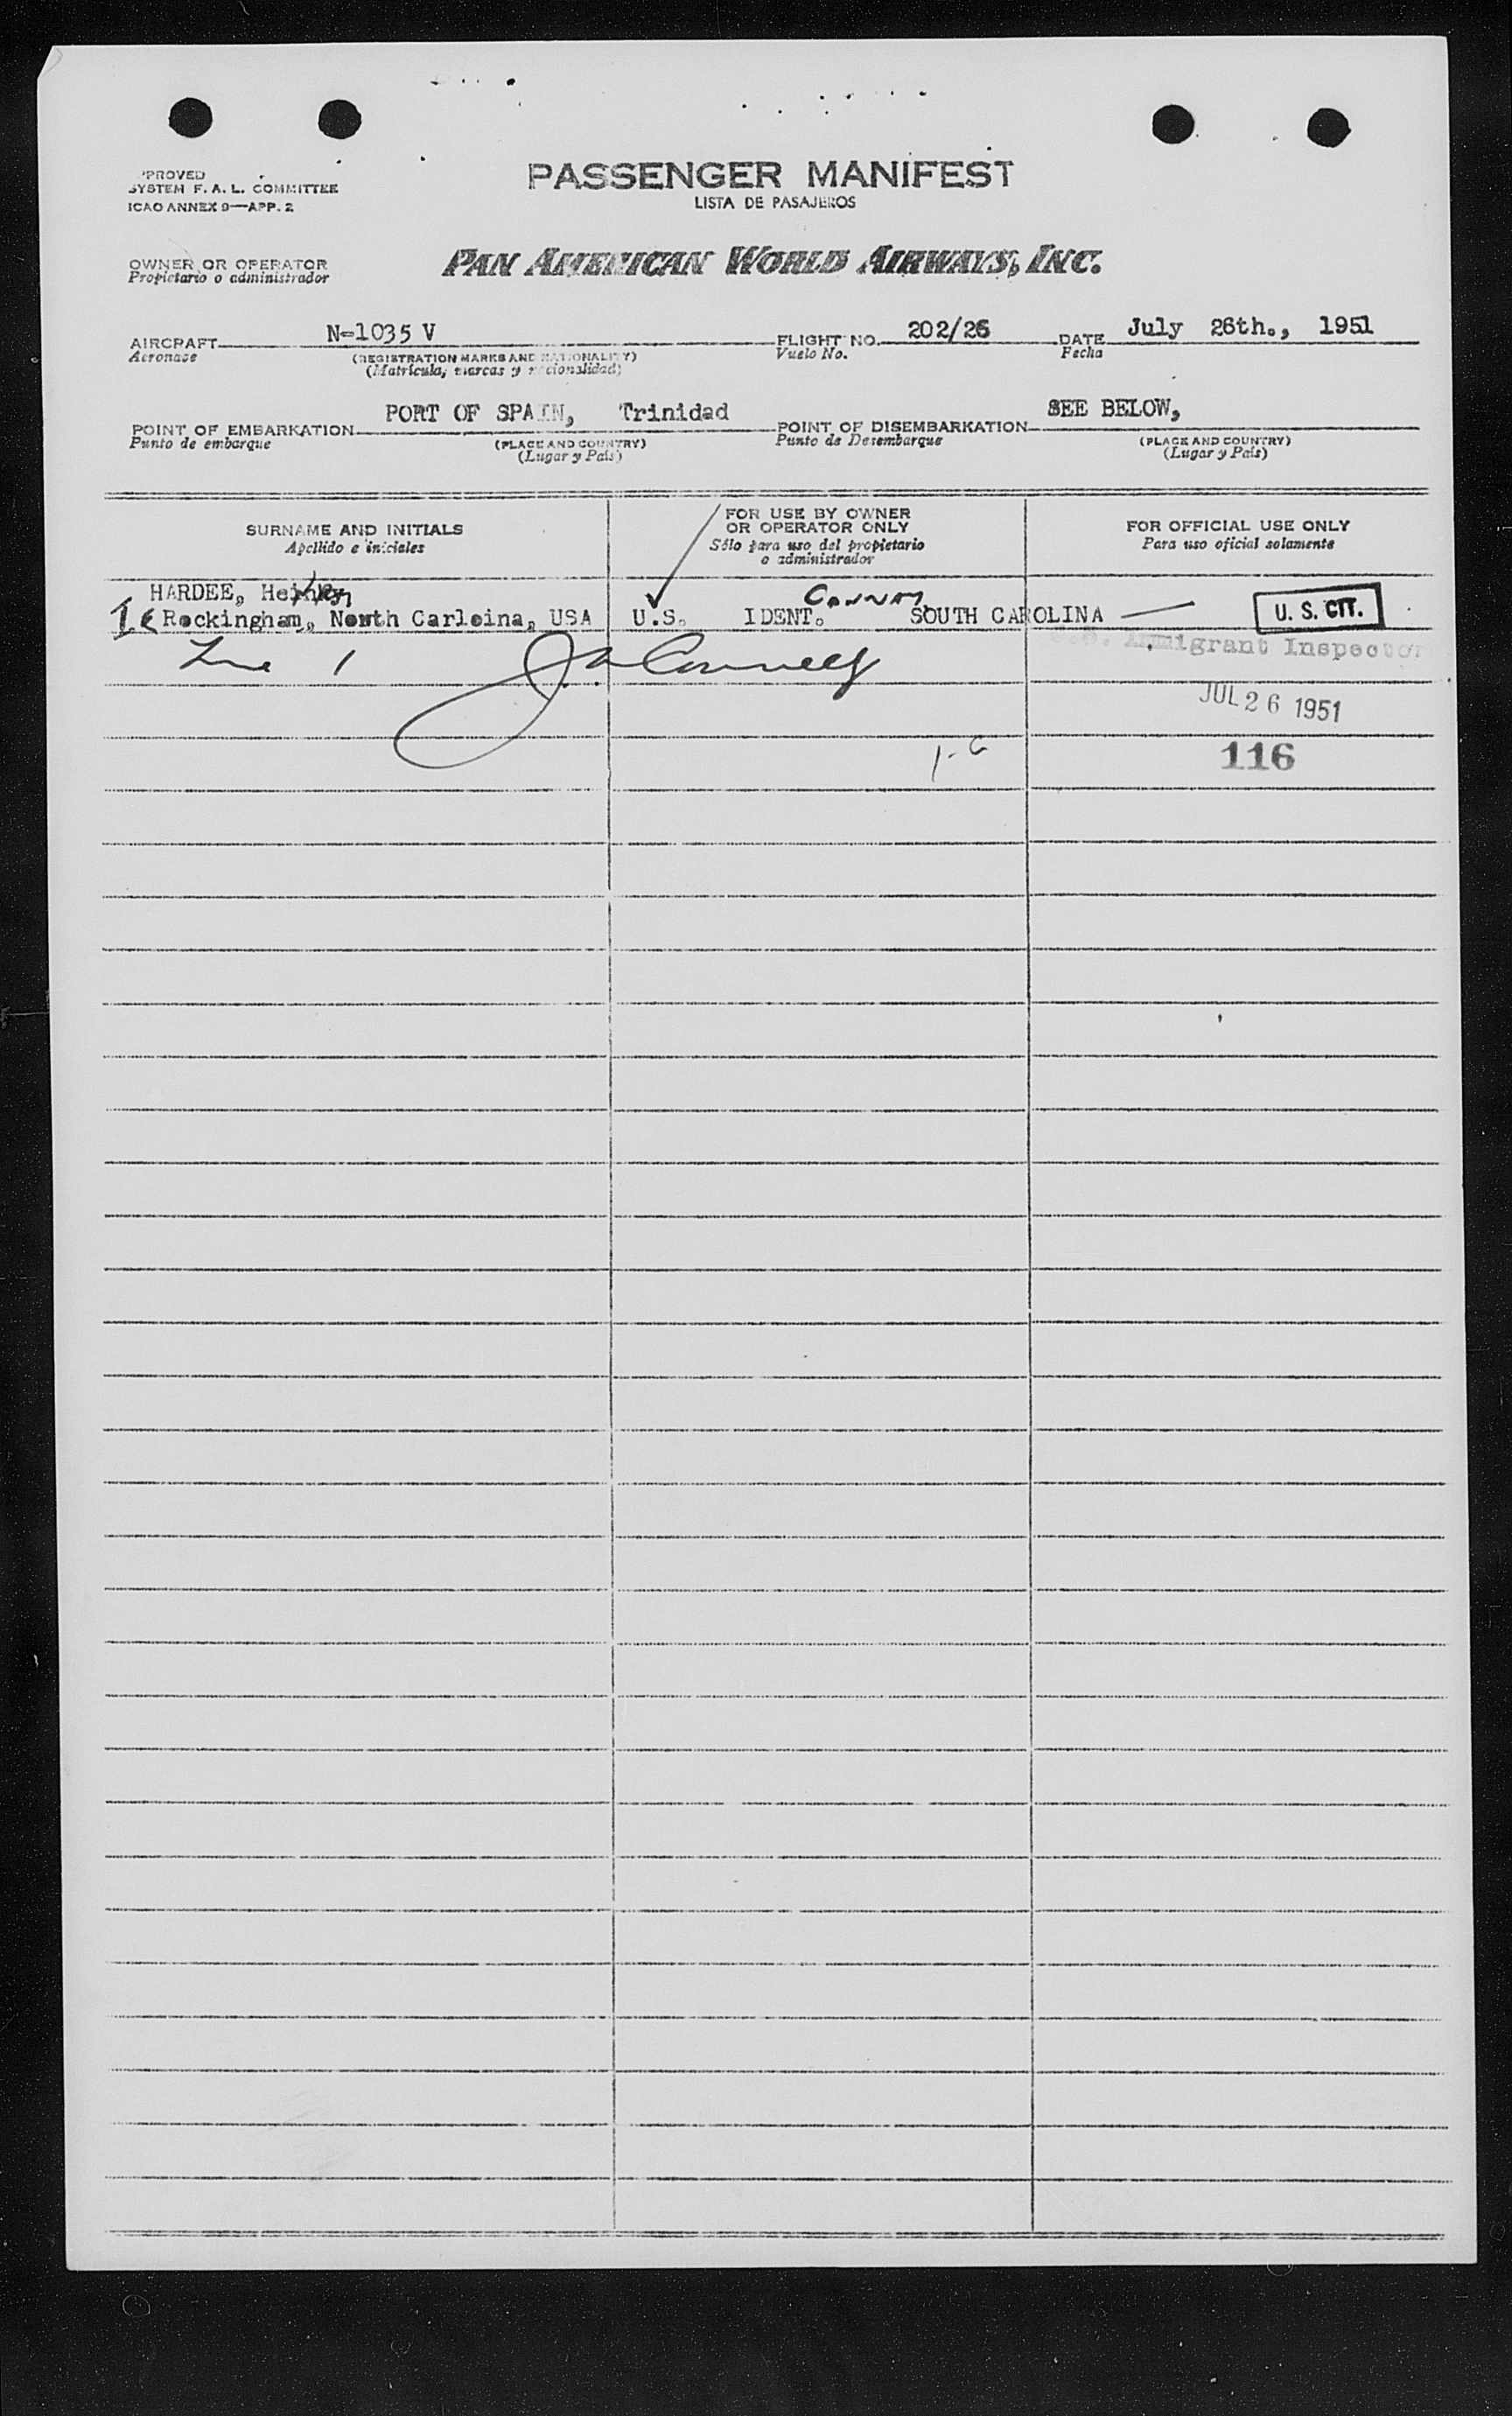 PROVED
SYSTEM F. A. L. COMMITTEE
ICAO ANNEX 9—APP. 2
PASSENGER MANIFEST
LISTA DE PASAJEROS
OWNER OR OPERATOR
Propietario o administrador
PAN AMERICAN WORLD AIRWAYS, INC.
AIRCRAFT N-1035 V FLIGHT NO. 202/26 DATE July 26th., 1951
Aeronave (REGISTRATION MARKS AND NATIONALITY) Vuelo No. Fecha
(Matrícula, marcas y nacionalidad)
POINT OF EMBARKATION PORT OF SPAIN, Trinidad POINT OF DISEMBARKATION SEE BELOW,
Punto de embarque (PLACE AND COUNTRY) Punto de Desembarque (PLACE AND COUNTRY)
(Lugar y País) (Lugar y País)
SURNAME AND INITIALS
Apellido e iniciales
FOR USE BY OWNER
OR OPERATOR ONLY
Sólo para uso del propietario
o administrador
FOR OFFICIAL USE ONLY
Para uso oficial solamente
HARDEE,
Rockingham, North Carleina, USA U.S. IDENT. CONWAY, SOUTH CAROLINA — U. S. CIT.
Line 1
Immigrant Inspector
JUL 26 1951
116